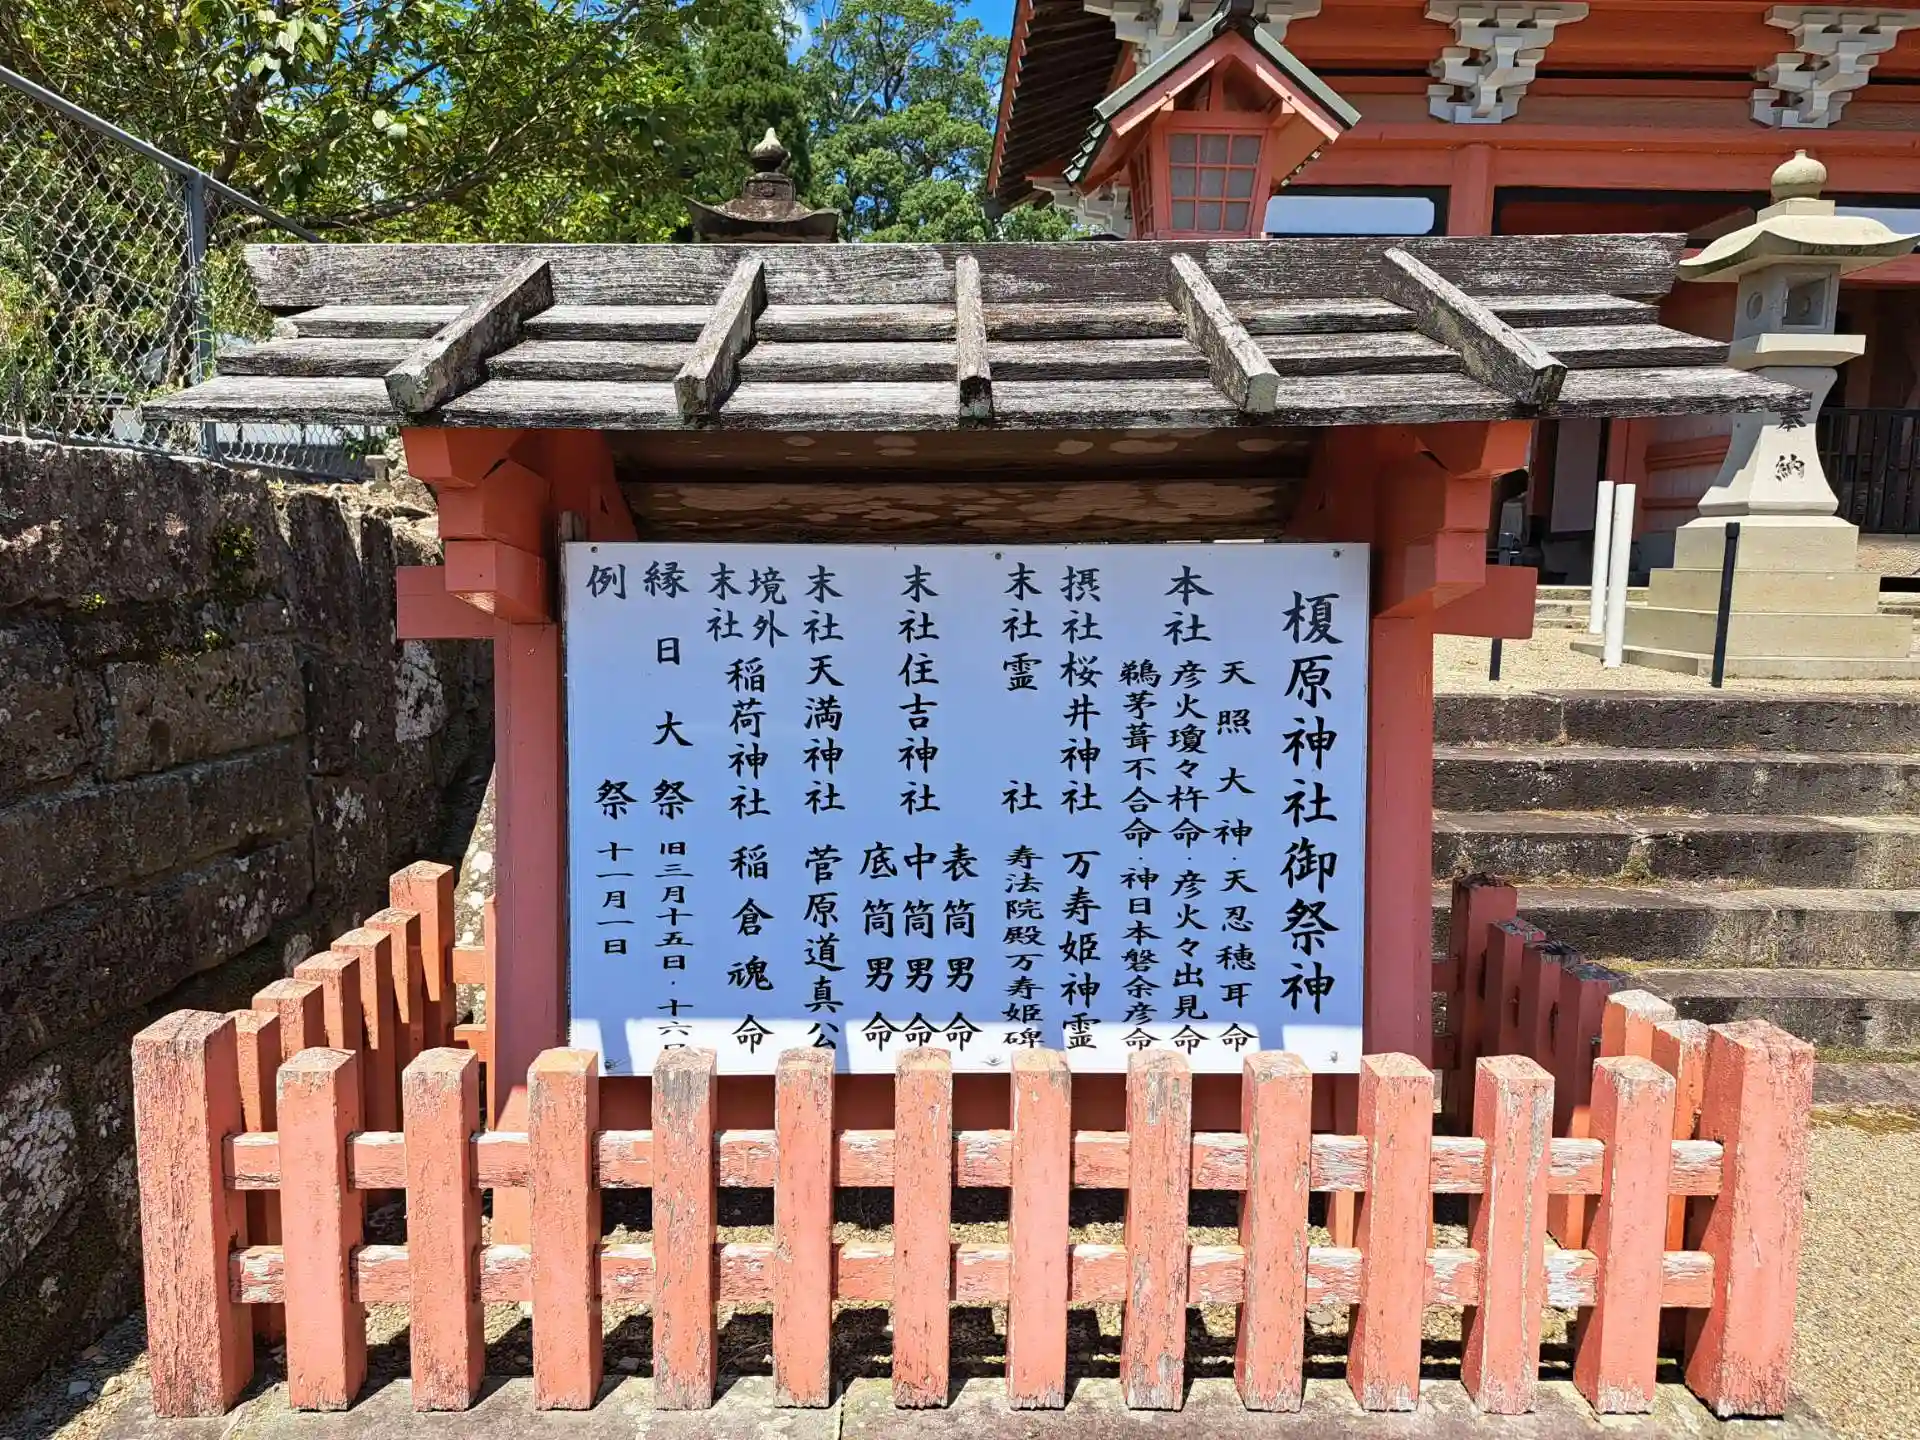 榎原神社御祭神
本社
天照大神・天忍穂耳命
彦火瓊々杵命・彦火々出見命
鵜茅葺不合命・神日本磐余彦命
摂社桜井神社 万寿姫神霊
末社霊社 寿法院殿万寿姫碑
末社住吉神社
表筒男命
中筒男命
底筒男命
末社天満神社 菅原道真公
境外末社 稲荷神社 稲倉魂命
縁日大祭 旧三月十五日・十六日
例祭 十一月一日
奉納